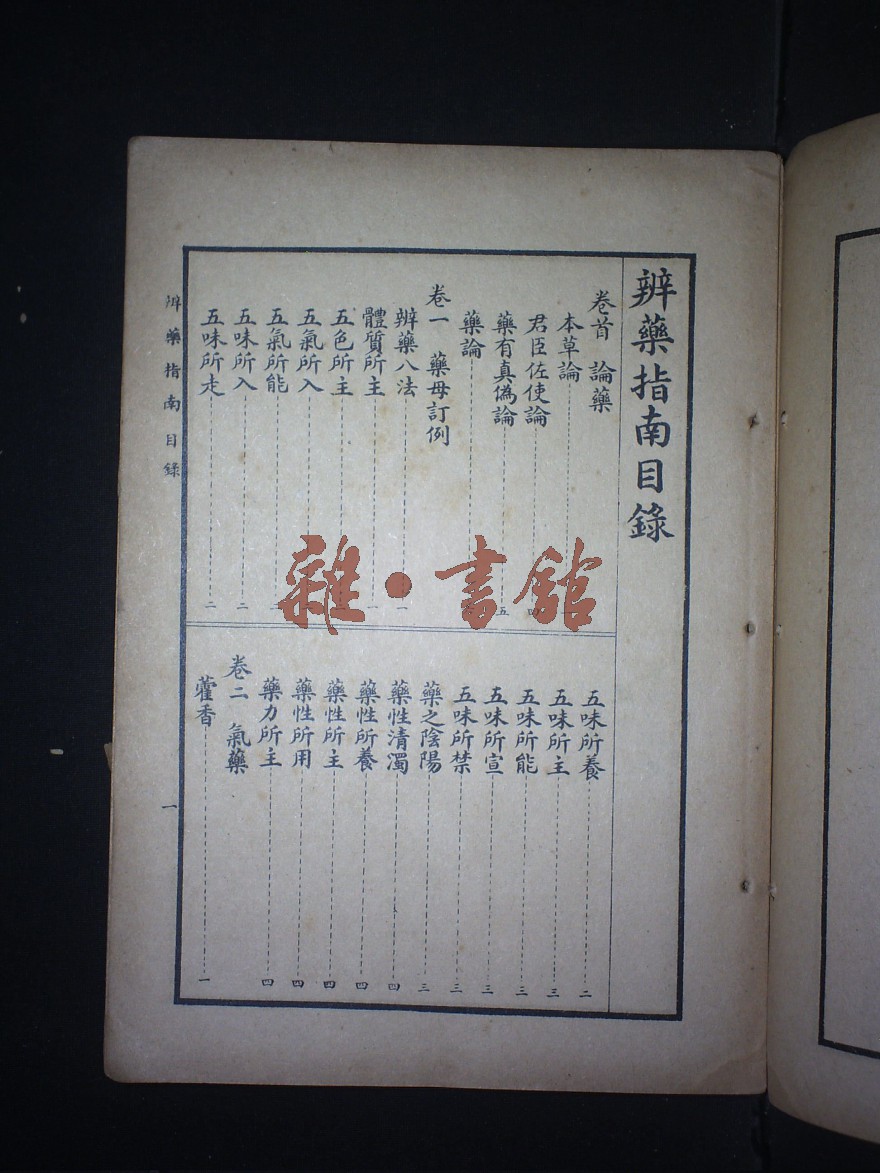 辨藥指南目錄
卷首　論藥
本草論
君臣佐使論　四
藥有真偽論　五
藥論
卷一　藥母訂例
辨藥八法　一
體質所主　一
五色所主
五氣所入
五氣所能
五味所入　二
五味所走　二
五味所養　二
五味所主　三
五味所能　三
五味所宣　三
五味所禁　三
藥之陰陽　三
藥性清濁　四
藥性所養　四
藥性所主　四
藥性所用　四
藥力所主　四
卷二　氣藥
藿香　一
辨藥指南目錄
一
雜・書館